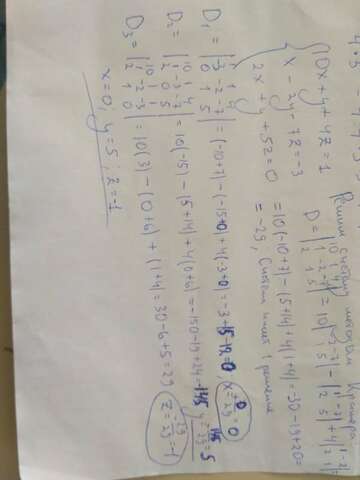 Реши систему методом Крамера
{10x + y + 4z = 1
x - 2y - 7z = -3
2x + y + 5z = 0
D = |10 1 4; 1 -2 -7; 2 1 5| = 10 |-2 -7; 1 5| - |1 -7; 2 5| + 4 |1 -2; 2 1| =
= 10(-10+7) - (5+14) + 4(1+4) = -30-19+20 =
= -29, Система имеет 1 решение
D₁ = |1 1 4; -3 -2 -7; 0 1 5| = (-10+7) - (-15+0) + 4(-3+0) = -3+15-12=0 x = 0/-29 = 0
D₂ = |10 1 4; 1 -3 -7; 2 0 5| = 10(-15) - (5+14) + 4(0+6) = -150-19+24=-145 y = -145/-29 = 5
D₃ = |10 1 1; 1 -2 -3; 2 1 0| = 10(3) - (0+6) + (1+4) = 30-6+5=29 z = 29/-29 = -1
x=0, y=5, z=-1